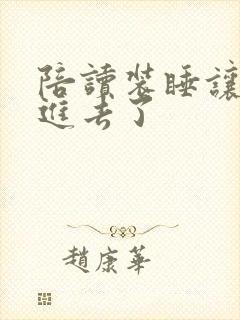 陪讀裝睡讓
進去了
趙康華